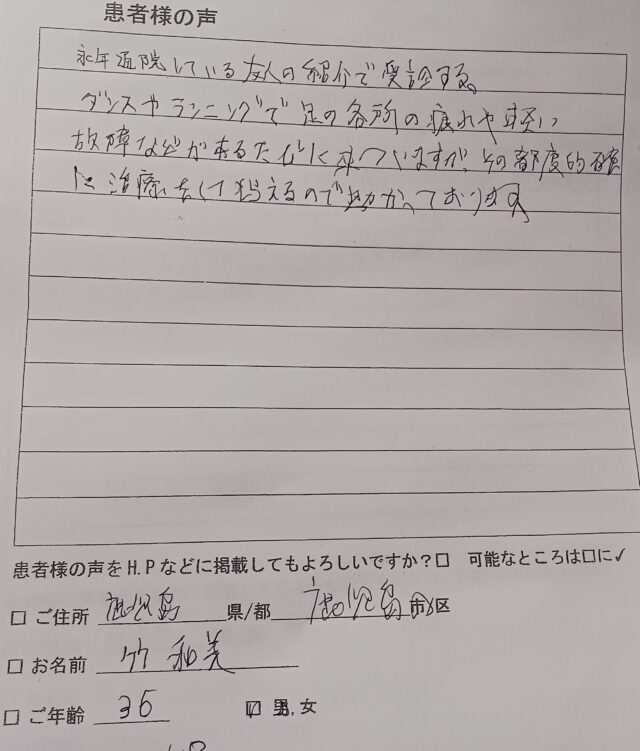 患者様の声
永年通院している友人の紹介で受診する。
ダンスやランニングで足の各所の疲れや軽い
故障などがあるたびに来ていますが、その都度的確
に治療をして貰えるので助かっております。
患者様の声をH.Pなどに掲載してもよろしいですか?□ 可能なところは□に✓
□ ご住所 鹿児島 県/都 鹿児島 市/区
□ お名前 竹 和美
□ ご年齢 36 ☑ 男,女